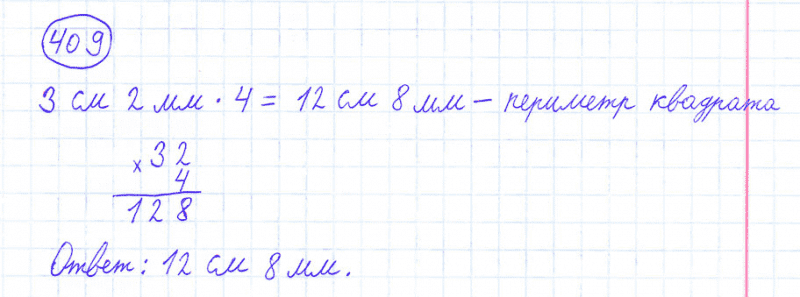 409
3 см 2 мм · 4 = 12 см 8 мм – периметр квадрата
× 32
4
128
Ответ: 12 см 8 мм.